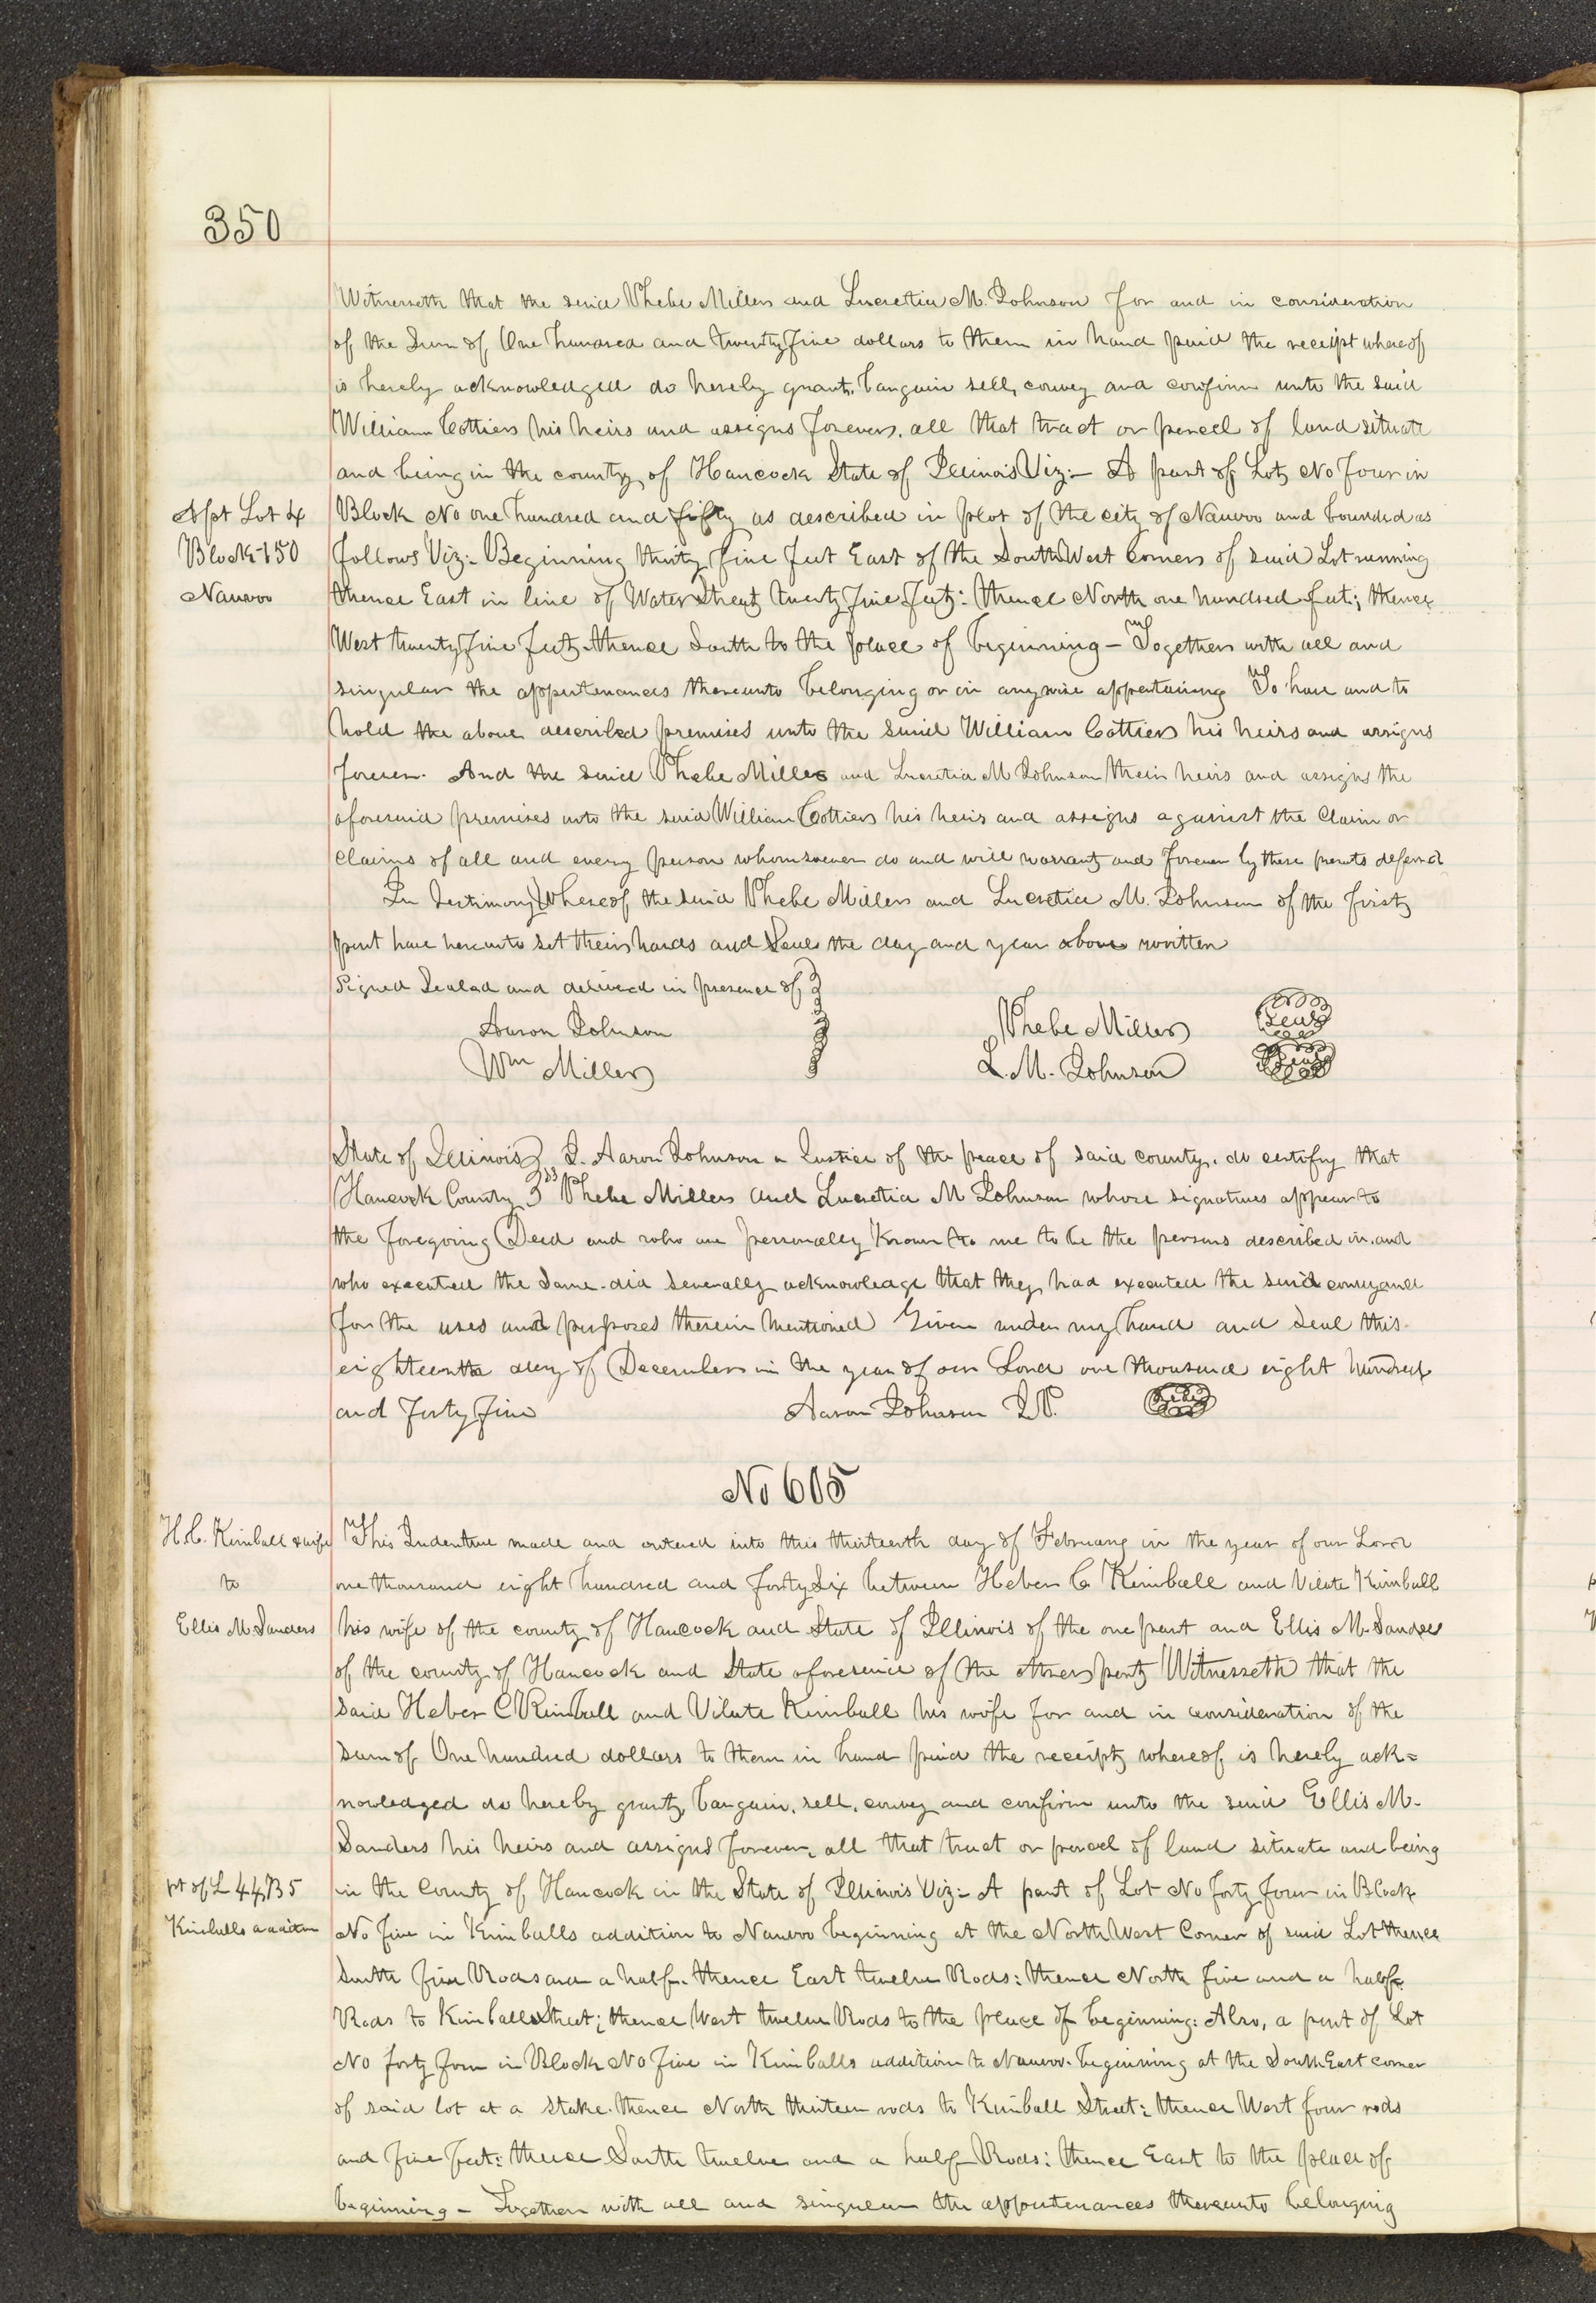 350
Witnesseth that the said Phebe Miller and Lucretia M. Johnson for and in consideration
of the Sum of One hundred and twenty five dollars to them in hand paid the receipt whereof
is hereby acknowledged do hereby grant, bargain sell, convey and confirm unto the said
William Cottier his heirs and assigns forever, all that tract or parcel of land situate
and being in the county of Hancock State of Illinois Viz:- A part of Lot No four in
A pt Lot 4
Block No one hundred and fifty as described in plot of the city of Nauvoo and bounded as
Block 150
follows Viz:- Beginning thirty five feet East of the South West Corner of said Lot running
Nauvoo
thence East in line of Water Street twenty five feet: thence North one hundred feet; thence
West twenty five feet thence South to the place of beginning - Together with all and
singular the appertenances thereunto belonging or in anywise appertaining To have and to
hold the above described premises unto the said William Cottier his heirs and assigns
forever. And the said Phebe Miller and Lucretia M Johnson their heirs and assigns the
aforesaid premises unto the said William Cottier his heirs and assigns against the Claim or
Claims of all and every person whomsoever do and will warrant and forever by these presents defend
In Testimony Whereof the said Phebe Miller and Lucretia M. Johnson of the first
part have hereunto set their hands and Seals the day and year above written
Signed Sealed and delivered in presence of
Aaron Johnson Phebe Miller Seal
Wm Miller L. M. Johnson Seal
State of Illinois I. Aaron Johnson a Justice of the peace of said county, do certify that
Hancock County ss Phebe Miller and Lucretia M Johnson whose signatures appear to
the foregoing Deed and who are personally Known to me to be the persons described in, and
who executed the same did severally acknowledge that they had executed the said conveyance
for the uses and purposes therein Mentioned Given under my hand and Seal this
eighteenth day of December in the year of our Lord one thousand eight hundred
and forty five Aaron Johnson J.P. Seal
No 605
H.C. Kimball & wife
This Indenture made and entered into this thirteenth day of February in the year of our Lord
to
one thousand eight hundred and forty Six between Heber C Kimball and Vilate Kimball
Ellis M. Sanders
his wife of the county of Hancock and State of Illinois of the one part and Ellis M. Sanders
of the county of Hancock and State aforesaid of the other part Witnesseth that the
said Heber C Kimball and Vilate Kimball his wife for and in consideration of the
sum of One hundred dollars to them in hand paid the receipt whereof is hereby ack=
nowledged do hereby grant, bargain, sell, convey and confirm unto the said Ellis M.
Sanders his heirs and assigns forever, all that tract or parcel of land situate and being
pt of L 44, B 5
in the County of Hancock in the State of Illinois Viz:- A part of Lot No forty four in Block
Kimballs addition
No five in Kimballs addition to Nauvoo beginning at the North West Corner of said Lot thence
South five Rods and a half. thence East twelve Rods: thence North five and a half
Rods to Kimball Street; thence West twelve Rods to the place of beginning: Also, a part of Lot
No forty four in Block No five in Kimballs addition to Nauvoo. beginning at the South East corner
of said lot at a stake. thence North thirteen rods to Kimball Street: thence West four rods
and five feet: thence South twelve and a half Rods: thence East to the place of
beginning - Together with all and singular the appertenances thereunto belonging